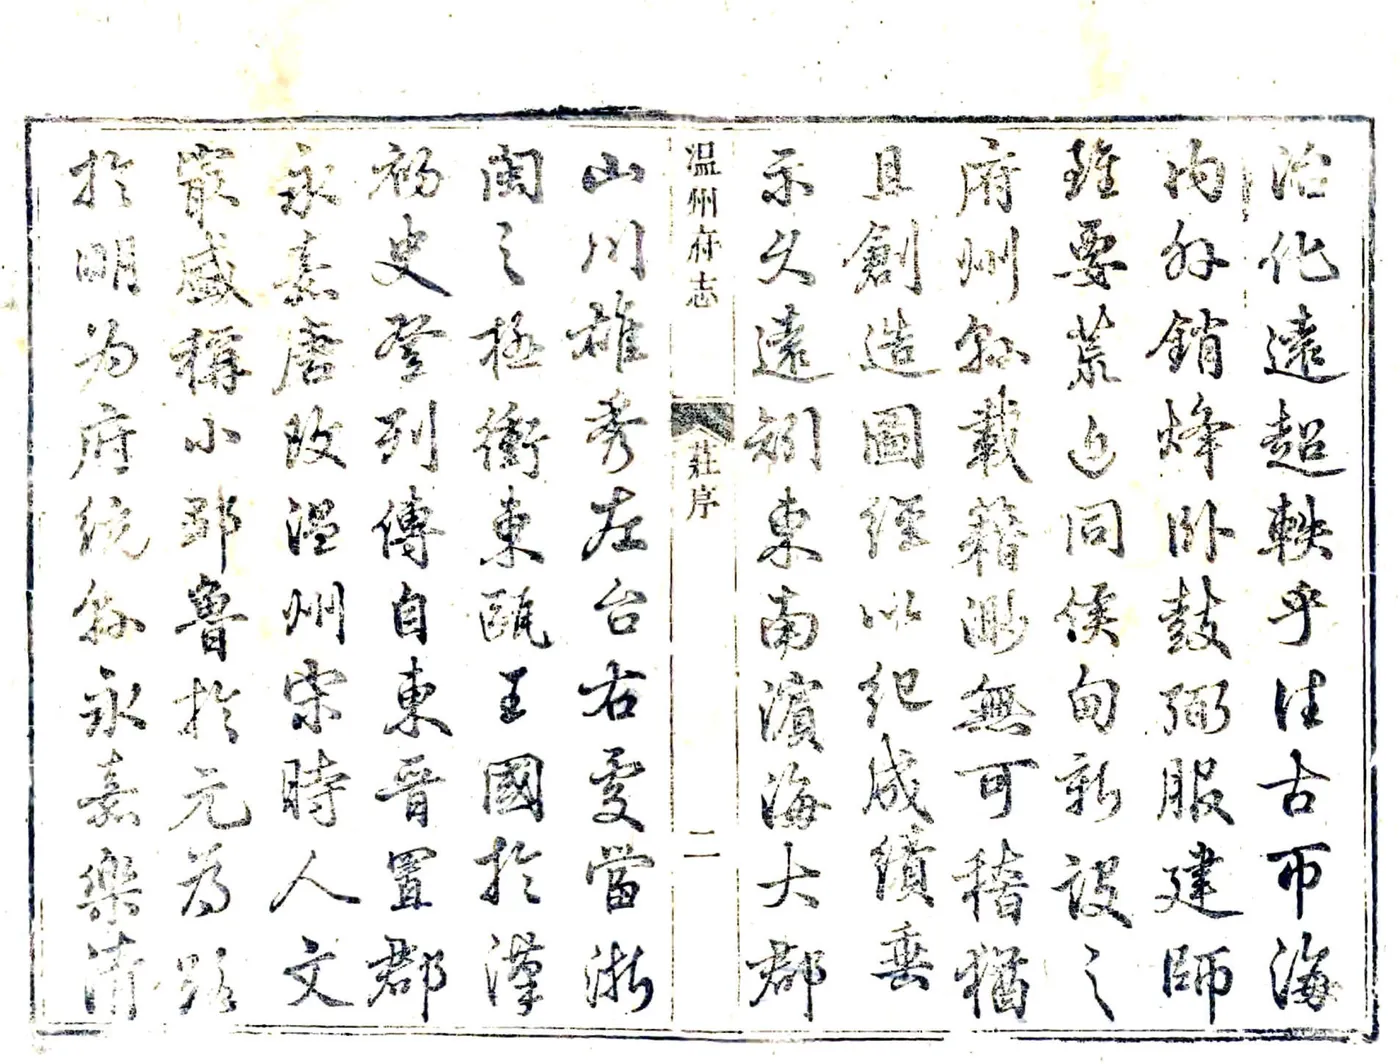 治化遠超軼乎往古而海
內外銷烽卧鼓弼服建師
雖要荒亦同侯甸新設之
府州縣載籍渺無可稽猶
且創造圖經以紀成績垂
示久遠矧東南濱海大郡
温州府志
莊序
二
山川雄秀左台右雯當浙
閩之極衝東甌王國於漢
初史登列傳自東晉置郡
永嘉唐改温州宋時人文
最盛稱小鄒魯於元為路
於明為府統縣永嘉樂清